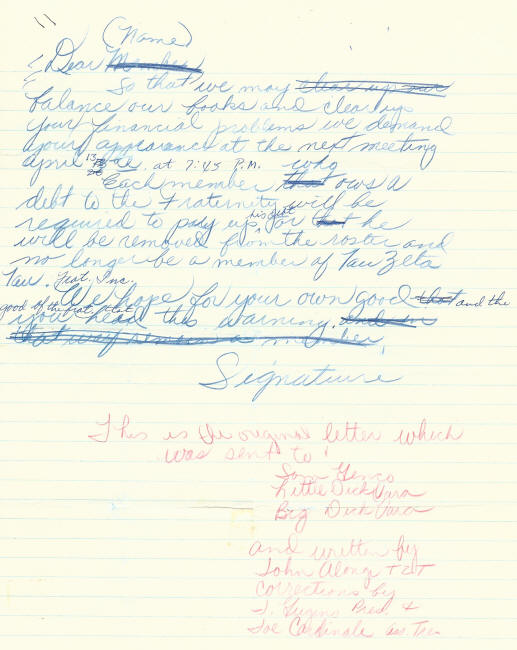 (Name)
Dear Member
So that we may clear up our
balance our books and clear up
your financial problems we demand
your appearance at the next meeting
april 13 at 7:45 P.M. who
Each member that ows a
debt to the Fraternity will be
required to pay up his debt or that he
will be removed from the roster and
no longer be a member of Tau Zeta
Tau. Frat. Inc.
We hope for your own good that and the
good of the frat. that
you heed this warning. and in
that way remain a member.
Signature
This is the original letter which
was sent to
Sam Genco
Little Dick Vara
Big Dick Vara
and written by
John Along TZT
corrections by
Pres. &
Joe Cardinale ass. Tres.